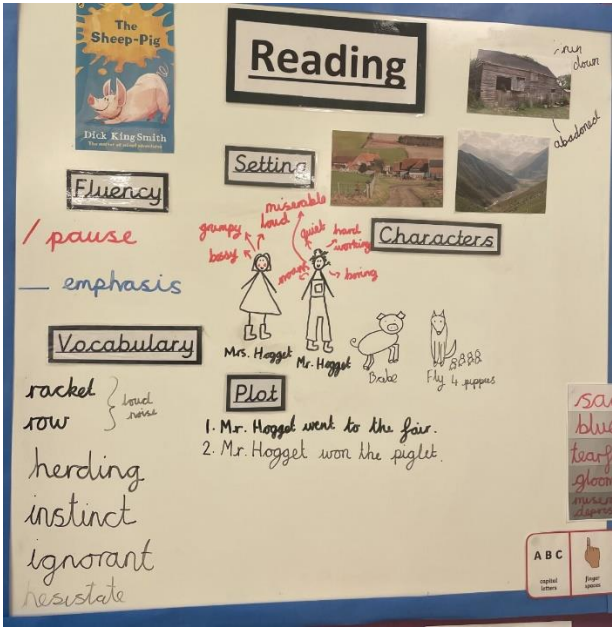 The
Sheep-Pig
Dick King-Smith
Reading
run
down
abadoned
Fluency
/ pause
__ emphasis
Setting
Characters
miserable
loud
grumpy
bossy
quiet
hard
working
boring
Mrs. Hogget
Mr. Hogget
Babe
Fly 4 puppies
Vocabulary
racket
row
loud
noise
herding
instinct
ignorant
hesistate
Plot
1. Mr. Hogget went to the fair.
2. Mr. Hogget won the piglet.
sa
blu
tearf
gloom
miser
depres
A B C
capital
letters
finger
spaces